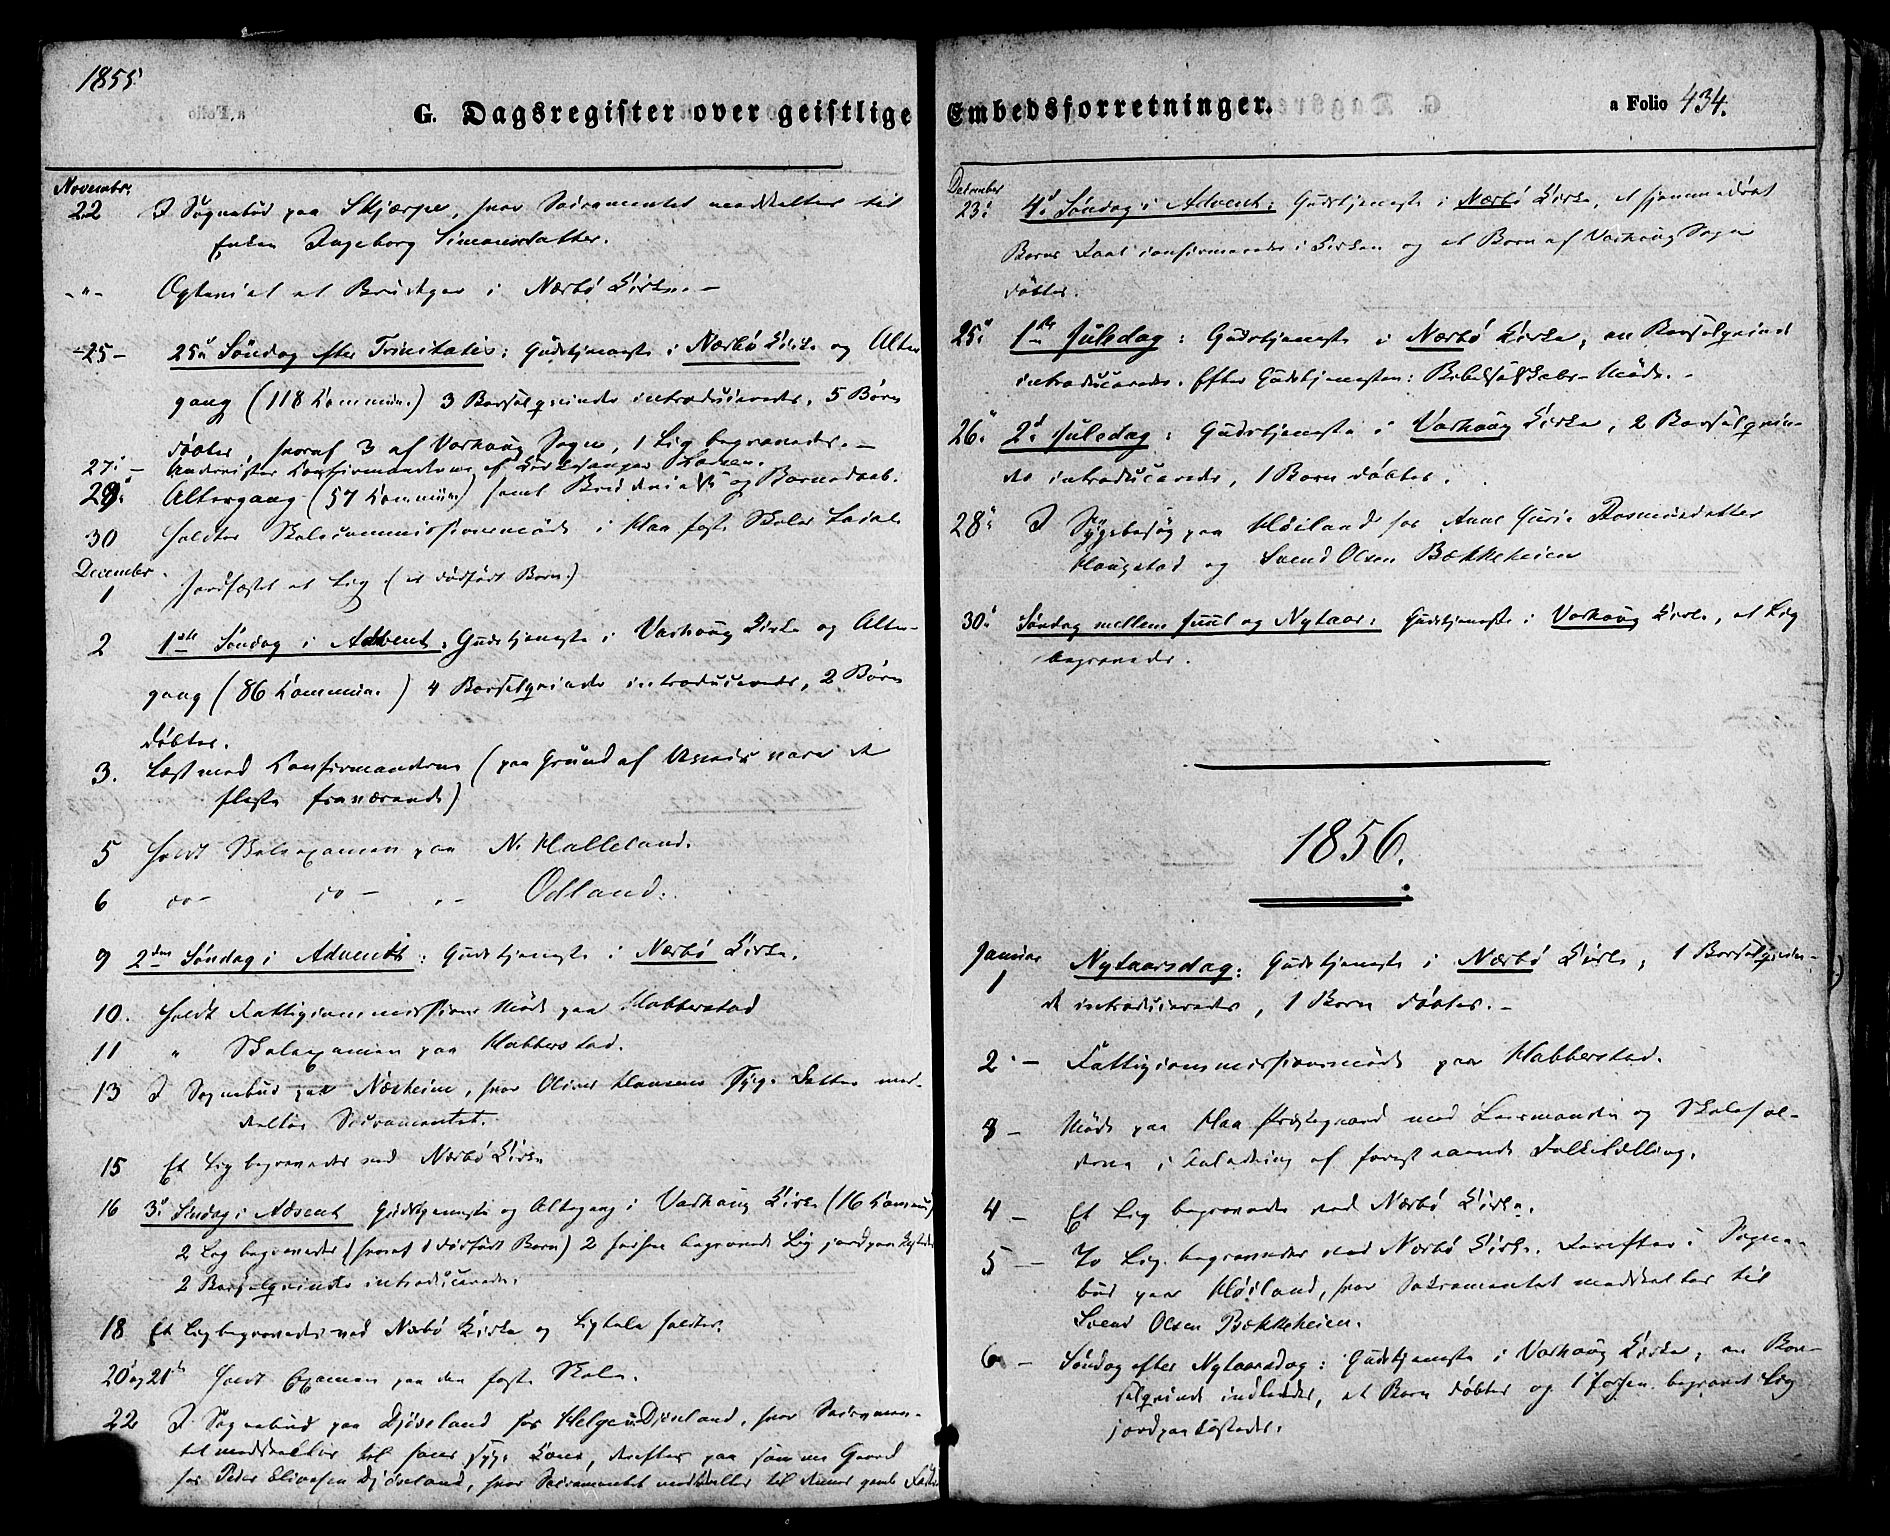 1855
G. Dagsregister over geistlige Embedsforretninger.
a Folio 434.
Novembr.
22 I Sognebud paa Skjærpe, hvor Sacramentet meddeltes til
Enken Ingeborg Simonsdatter.
-"- et Brudepar i Nærbø Kirke. -
-25- 25de Søndag efter Trinitatis: Gudstjeneste i Nærbø Kirke og Alter
gang (118 Commun.) 3 Barselqvinder introduceredes, 5 Børn
døbtes, hvoraf 3 af Varhoug Sogn, 1 Lig begravedes. -
27: - Underviste Confirmanderne af Kirkesanger
29: Altergang (57 Commun) samt og Barnedaab.
30 holdtes Skolecommissionsmøde i Haa faste Skoles Locale
December
1 Jordfæstet et Lig (et dødfødt Barn.)
2 1ste Søndag i Advent: Gudstjeneste i Varhoug Kirke og Alter-
gang (86 Commun.) 4 Barselqvinder introduceredes, 2 Børn
døbtes.
3. Læst med Confirmanderne (paa Grund af vare de
fleste fraværende)
5 holdt Skoleexamen paa N. Halleland.
6 do- do- "- Odland.
9 2den Søndag i Advent: Gudstjeneste i Nærbø Kirke.
10. holdt Fattigcommissions Møde paa Habberstad
11 " Skoleexamen paa Habberstad.
13 I Sognebud paa Næsheim, hvor Hansens syge Datter med-
deltes Sacramentet.
15 Et Lig begravedes ved Nærbø Kirke
16 3de Søndag i Advent Gudstjeneste og Altergang i Varhoug Kirke (16 Commun)
2 Lig begravedes (hvoraf 1 dødfødt Barn) 2 forhen begravede Lig jordpaakastedes
2 Barselqvinder introduceredes.
18 Et Lig begravedes ved Nærbø Kirke og Ligtale holdtes.
20 og 21de holdt Examen paa den faste Skole.
22 I Sognebud paa Djøseland for Helge Djøseland, hvor Sacramen-
tet meddeeltes til hans syge Kone, derefter paa samme Gaard
for Peder Djøseland, hvor Sacramentet meddeeltes til gamle
December
23: 4de Søndag i Advent: Gudstjeneste i Nærbø Kirke, et hjemmedøbt
Barns Daab confirmeredes i Kirken og et Barn af Varhoug Sogn
døbtes.
25: 1ste Juledag: Gudstjeneste i Nærbø Kirke, en Barselqvinde
introduceredes. Efter Gudstjenesten: Bibelselskabs-Møde. -
26: 2d. Juledag: Gudstjeneste i Varhoug Kirke, 2 Barselqvin-
der introduceredes, 1 Barn døbtes.
28: I Sygebesøg paa Høiland hos Anne Guri Rasmusdatter
Haugstad og Svend Olsen Bækkeheien
30: Søndag mellem Juul og Nytaar: Gudstjeneste i Varhoug Kirke, et Lig
begravedes.
1856.
Januar
1 Nytaarsdag: Gudstjeneste i Nærbø Kirke, 1 Barselqvin-
de introduceredes, 1 Barn døbtes. -
2. - Fattigcommissionsmøde paa Habberstad.
3 - Møde paa Haa Præstegaard med Lensmanden og Skolehol-
derne i Anledning af forestaaende Folketælling.
4 - Et Lig begravedes ved Nærbø Kirke.
5 - To Lig begravedes ved Nærbø Kirke. Derefter i Sogne-
bud paa Høiland, hvor Sakramentet meddeeltes til
Svend Olsen Bækkeheien.
6 - Søndag efter Nytaarsdag: Gudstjeneste i Varhoug Kirke, en Bar-
selqvinde indlededes, et Barn døbtes og 1 forhen begravet Lig
jordpaakastedes.